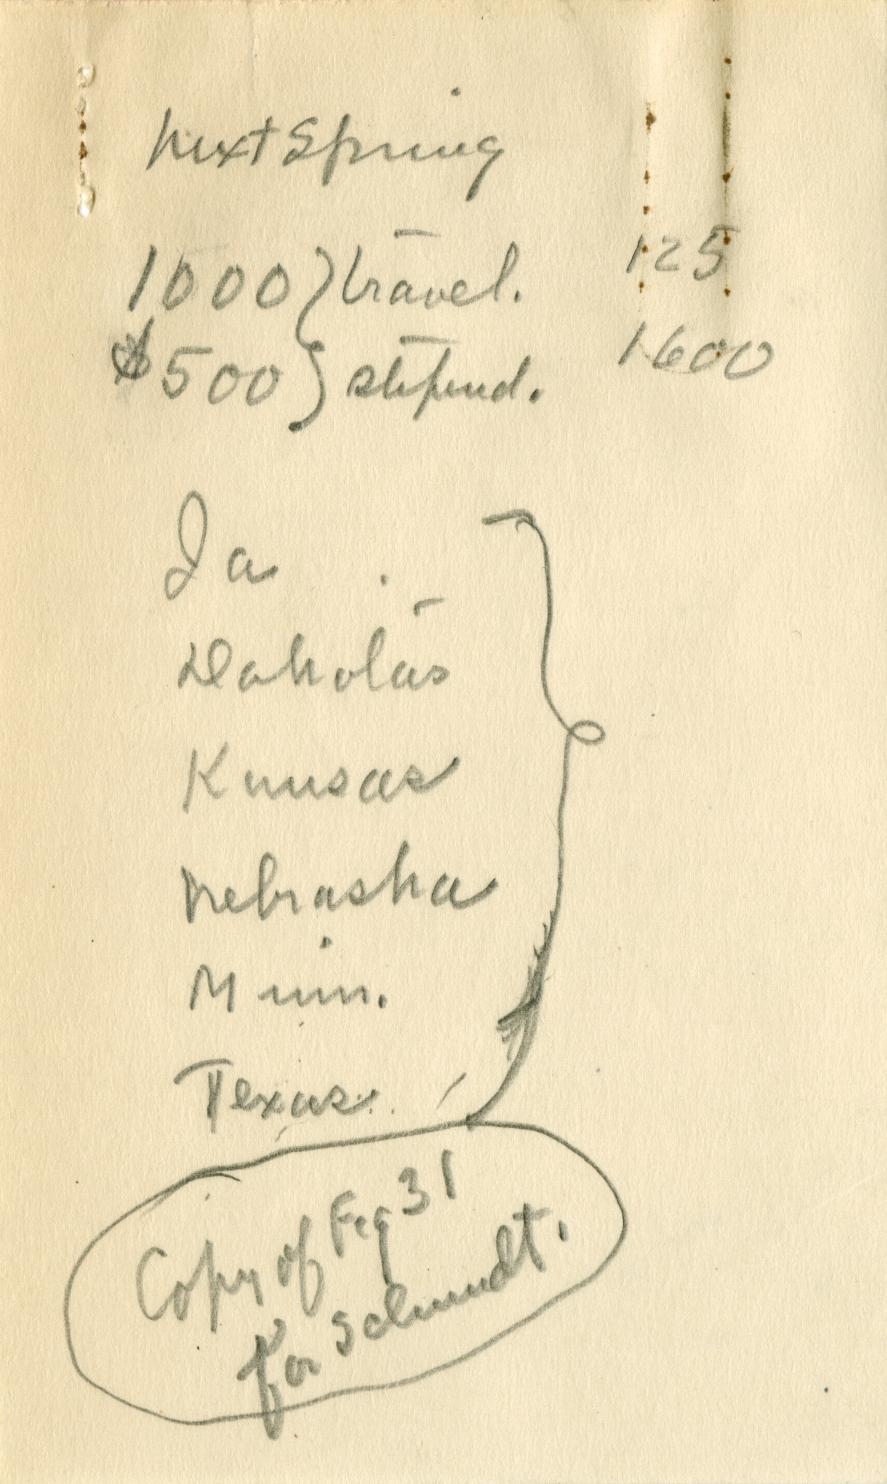 Next Spring
1000 } travel. 125
$500 } stipend. 1600
Ia
Dakotas
Kansas
Nebraska
Minn.
Texas
Copy of Fig 31
for Schmidt.